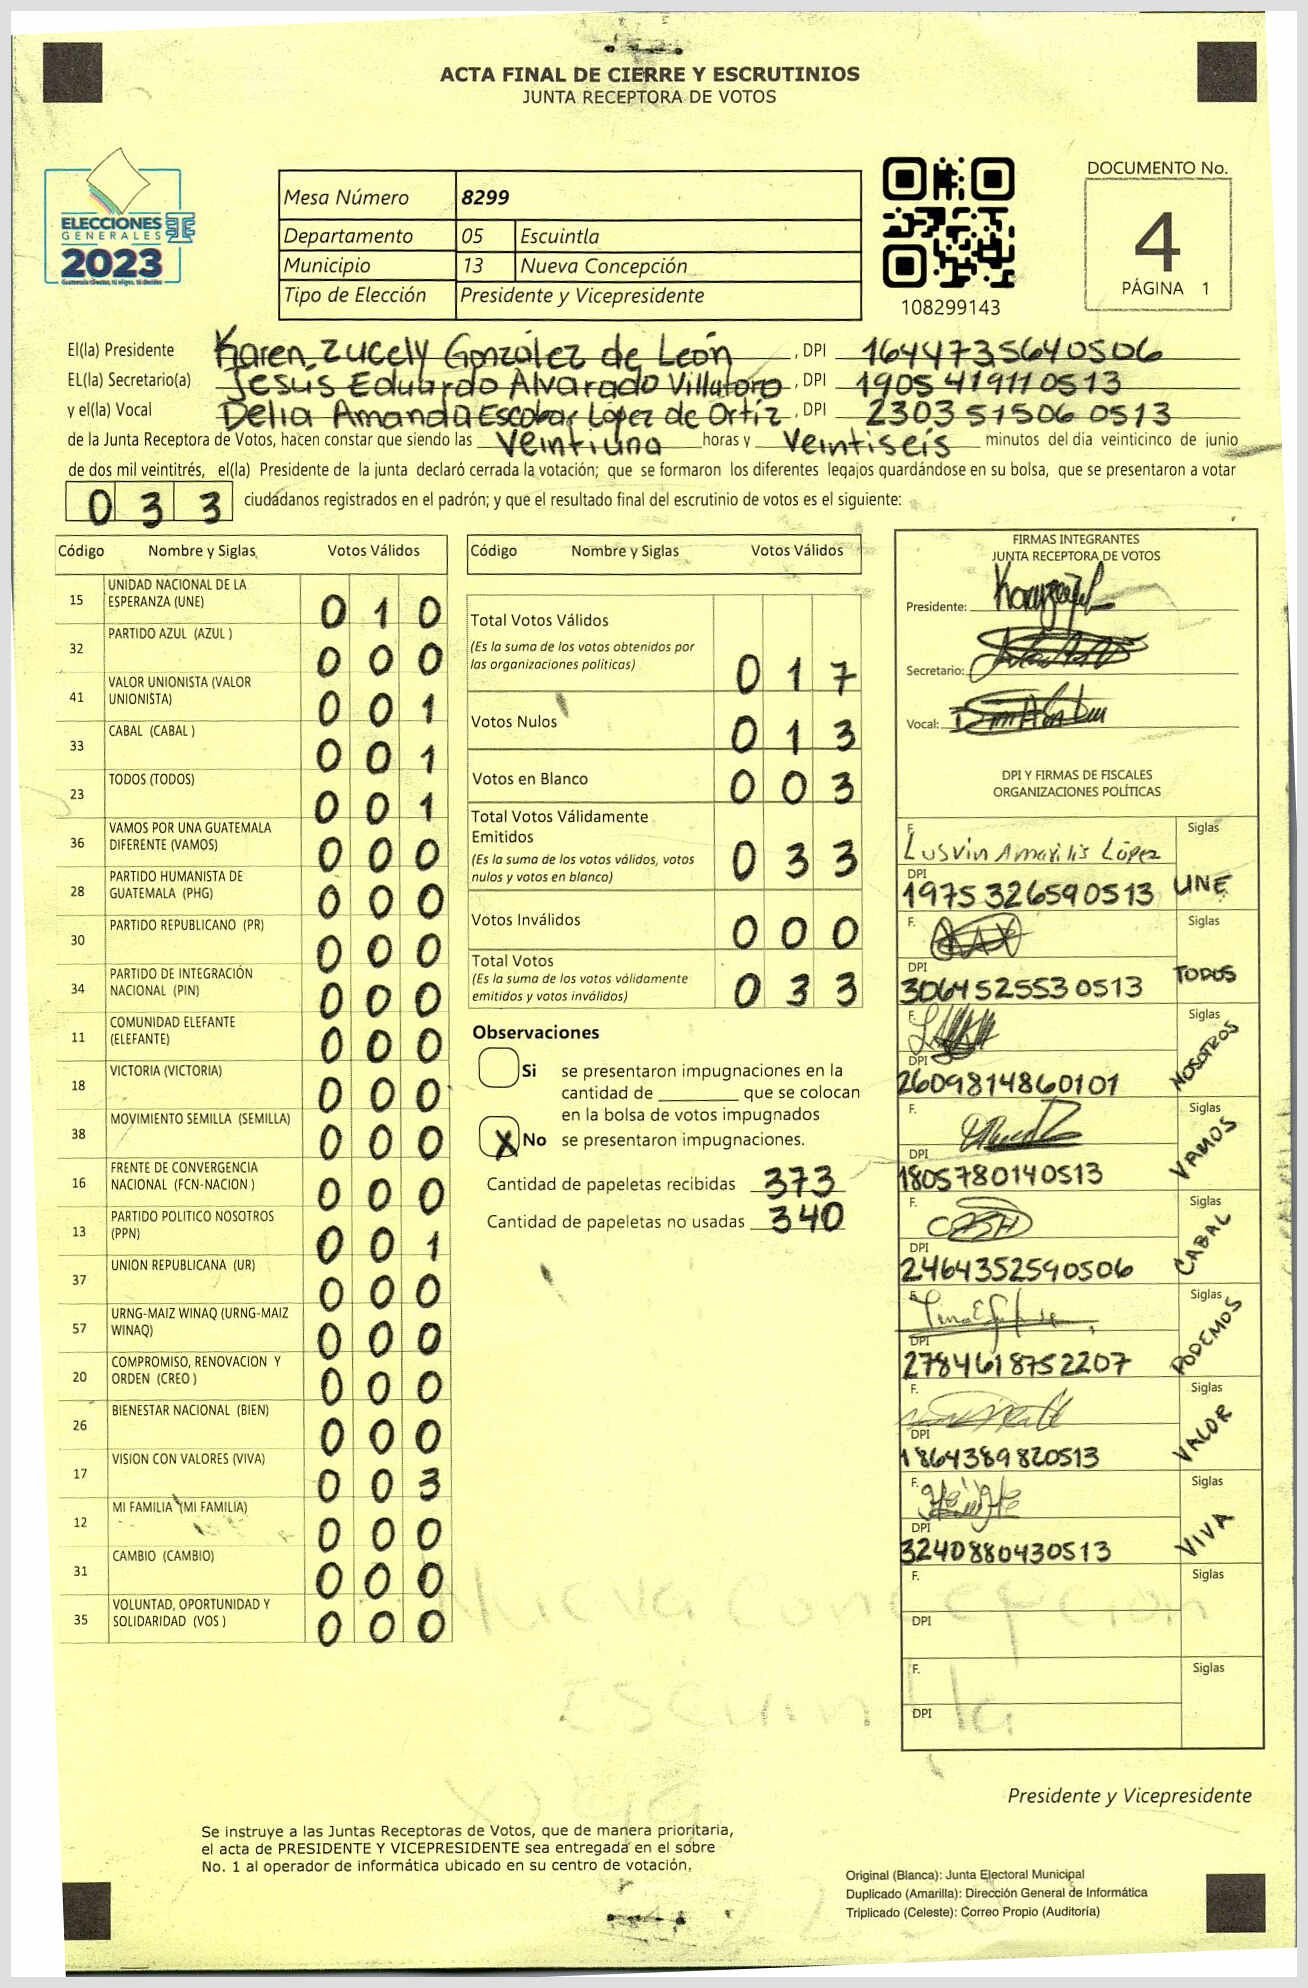 ACTA FINAL DE CIERRE Y ESCRUTINIOS
JUNTA RECEPTORA DE VOTOS
ELECCIONES
GENERALES
2023
Mesa Número 8299
Departamento 05 Escuintla
Municipio 13 Nueva Concepción
Tipo de Elección Presidente y Vicepresidente
108299143
DOCUMENTO No.
4
PÁGINA 1
El(la) Presidente Karen Zucely González de León, DPI 1644735640506
EL(la) Secretario(a) Jesús Eduardo Alvarado Villatoro, DPI 1905419110513
y el(la) Vocal Delia Amanda Escobar López de Ortíz, DPI 2303515060513
de la Junta Receptora de Votos, hacen constar que siendo las Veintiuna horas y Veintiseis minutos del día veinticinco de junio
de dos mil veintitrés, el(la) Presidente de la junta declaró cerrada la votación; que se formaron los diferentes legajos guardándose en su bolsa, que se presentaron a votar
033 ciudadanos registrados en el padrón; y que el resultado final del escrutinio de votos es el siguiente:
Código Nombre y Siglas Votos Válidos
15 UNIDAD NACIONAL DE LA ESPERANZA (UNE) 010
32 PARTIDO AZUL (AZUL ) 000
41 VALOR UNIONISTA (VALOR UNIONISTA) 001
33 CABAL (CABAL ) 001
23 TODOS (TODOS) 001
36 VAMOS POR UNA GUATEMALA DIFERENTE (VAMOS) 000
28 PARTIDO HUMANISTA DE GUATEMALA (PHG) 000
30 PARTIDO REPUBLICANO (PR) 000
34 PARTIDO DE INTEGRACIÓN NACIONAL (PIN) 000
11 COMUNIDAD ELEFANTE (ELEFANTE) 000
18 VICTORIA (VICTORIA) 000
38 MOVIMIENTO SEMILLA (SEMILLA) 000
16 FRENTE DE CONVERGENCIA NACIONAL (FCN-NACION ) 000
13 PARTIDO POLITICO NOSOTROS (PPN) 001
37 UNION REPUBLICANA (UR) 000
57 URNG-MAIZ WINAQ (URNG-MAIZ WINAQ) 000
20 COMPROMISO, RENOVACION Y ORDEN (CREO ) 000
26 BIENESTAR NACIONAL (BIEN) 000
17 VISION CON VALORES (VIVA) 003
12 MI FAMILIA (MI FAMILIA) 000
31 CAMBIO (CAMBIO) 000
35 VOLUNTAD, OPORTUNIDAD Y SOLIDARIDAD (VOS ) 000
Código Nombre y Siglas Votos Válidos
Total Votos Válidos
(Es la suma de los votos obtenidos por
las organizaciones políticas) 017
Votos Nulos 013
Votos en Blanco 003
Total Votos Válidamente
Emitidos
(Es la suma de los votos válidos, votos
nulos y votos en blanco) 033
Votos Inválidos 000
Total Votos
(Es la suma de los votos válidamente
emitidos y votos inválidos) 033
Observaciones
Si se presentaron impugnaciones en la
cantidad de ________ que se colocan
en la bolsa de votos impugnados
X No se presentaron impugnaciones.
Cantidad de papeletas recibidas 373
Cantidad de papeletas no usadas 340
FIRMAS INTEGRANTES
JUNTA RECEPTORA DE VOTOS
Presidente:
Secretario:
Vocal:
DPI Y FIRMAS DE FISCALES
ORGANIZACIONES POLÍTICAS
F. Lusvin Amarilis López Siglas
DPI 1975326590513 UNE
F. Siglas
DPI 3064525530513 TODOS
F. Siglas
DPI 2609814860101 NOSOTROS
F. Siglas
DPI 1805780140513 VAMOS
F. Siglas
DPI 2464352590506 CABAL
F. Siglas
DPI 2784618752207 PODEMOS
F. Siglas
DPI 1864389820513 VALOR
F. Siglas
DPI 3240880430513 VIVA
F. Siglas
DPI
F. Siglas
DPI
Nueva Concepcion
Escuintla
Presidente y Vicepresidente
Se instruye a las Juntas Receptoras de Votos, que de manera prioritaria,
el acta de PRESIDENTE Y VICEPRESIDENTE sea entregada en el sobre
No. 1 al operador de informática ubicado en su centro de votación.
Original (Blanca): Junta Electoral Municipal
Duplicado (Amarilla): Dirección General de Informática
Triplicado (Celeste): Correo Propio (Auditoría)